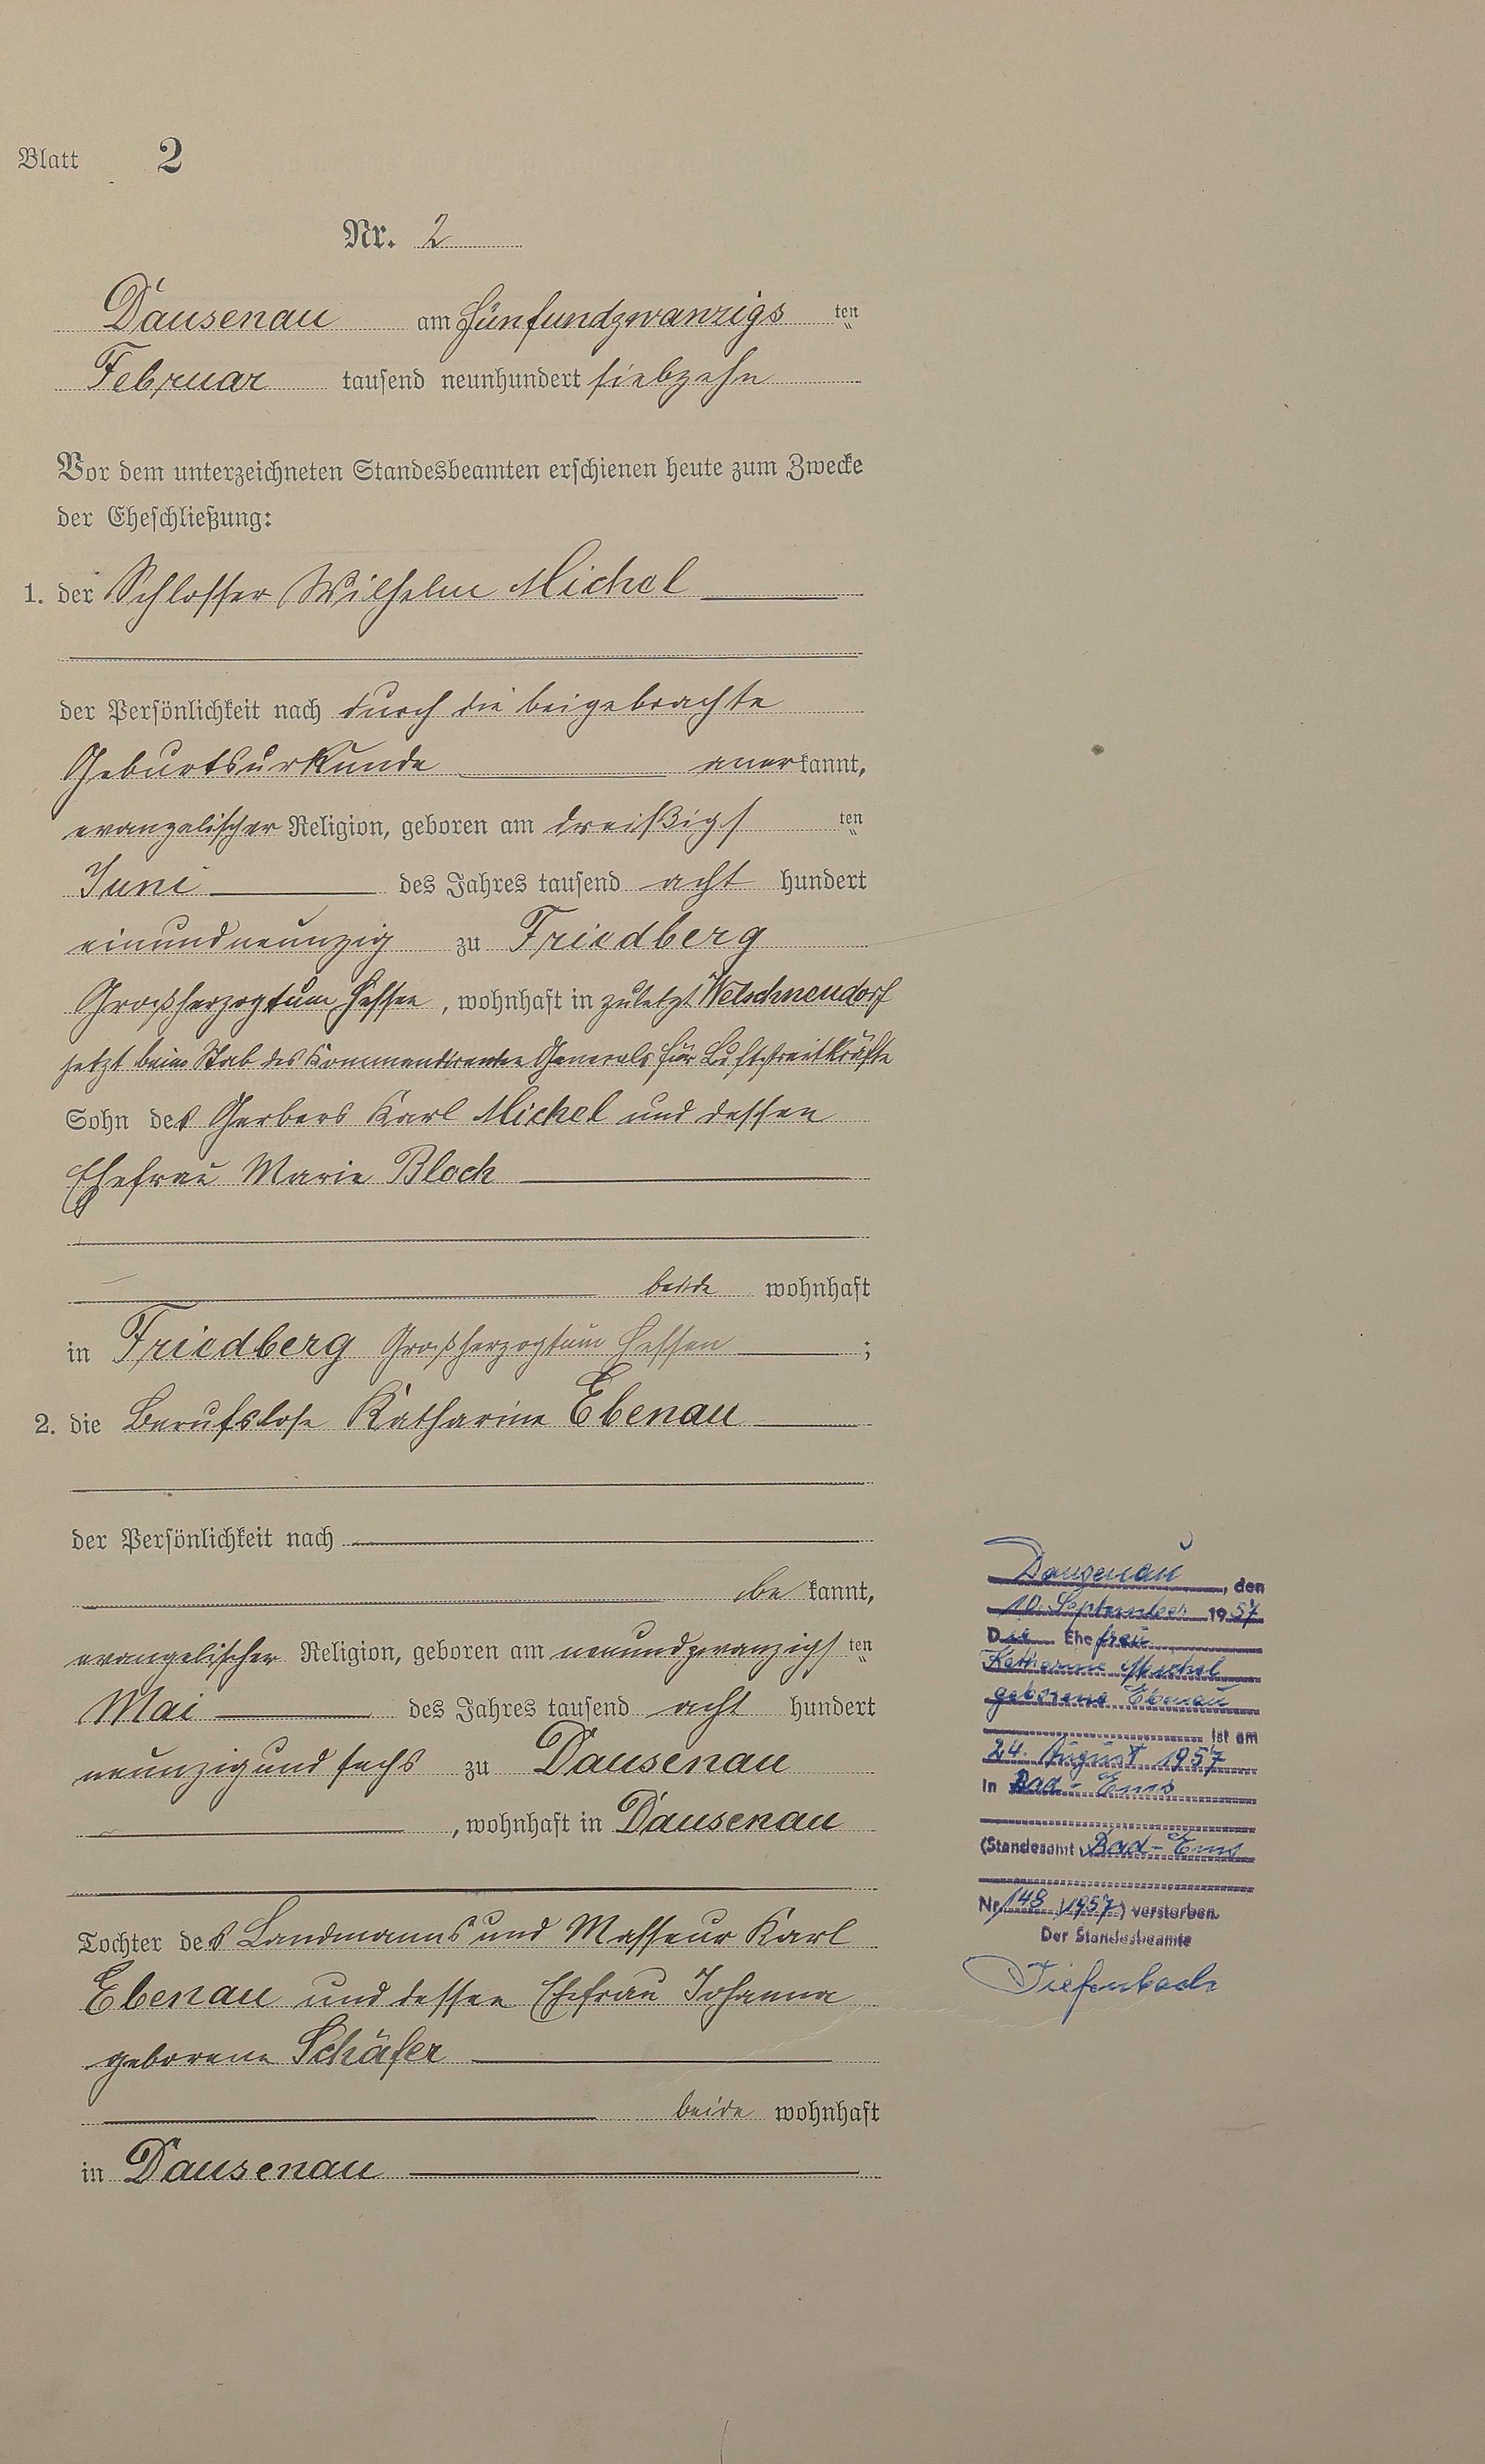 Blatt 2
Nr. 2
Dausenau am fünfundzwanzigs ten
Februar tausend neunhundert siebzehn
Vor dem unterzeichneten Standesbeamten erschienen heute zum Zwecke
der Eheschließung:
1. der Schlosser Wilhelm Michel
der Persönlichkeit nach durch die beigebrachte
Geburtsurkunde anerkannt,
evangelischer Religion, geboren am dreißigs ten
Juni des Jahres tausend acht hundert
einundneunzig zu Friedberg
Großherzogtum Hessen, wohnhaft in zuletzt Welschneudorf
jetzt beim Stab des Kommandirenden Generals für Luftstreitkräfte
Sohn des Gerbers Karl Michel und dessen
Ehefrau Marie Bloch
beide wohnhaft
in Friedberg Großherzogtum Hessen ;
2. die Berufslose Katharine Ebenau
der Persönlichkeit nach
be kannt,
evangelischer Religion, geboren am neunundzwanzigs ten
Mai des Jahres tausend acht hundert
neunzig und sechs zu Dausenau
, wohnhaft in Dausenau
Tochter des Landmanns und Masseur Karl
Ebenau und dessen Ehefrau Johanna
geborene Schäfer
beide wohnhaft
in Dausenau
Dausenau, den
10. September 1957
Die Ehefrau
Katharine Michel
geborene Ebenau
ist am
24. August 1957
in Bad-Ems
(Standesamt Bad-Ems
Nr. 148/1957) verstorben.
Der Standesbeamte
Tiefenbach